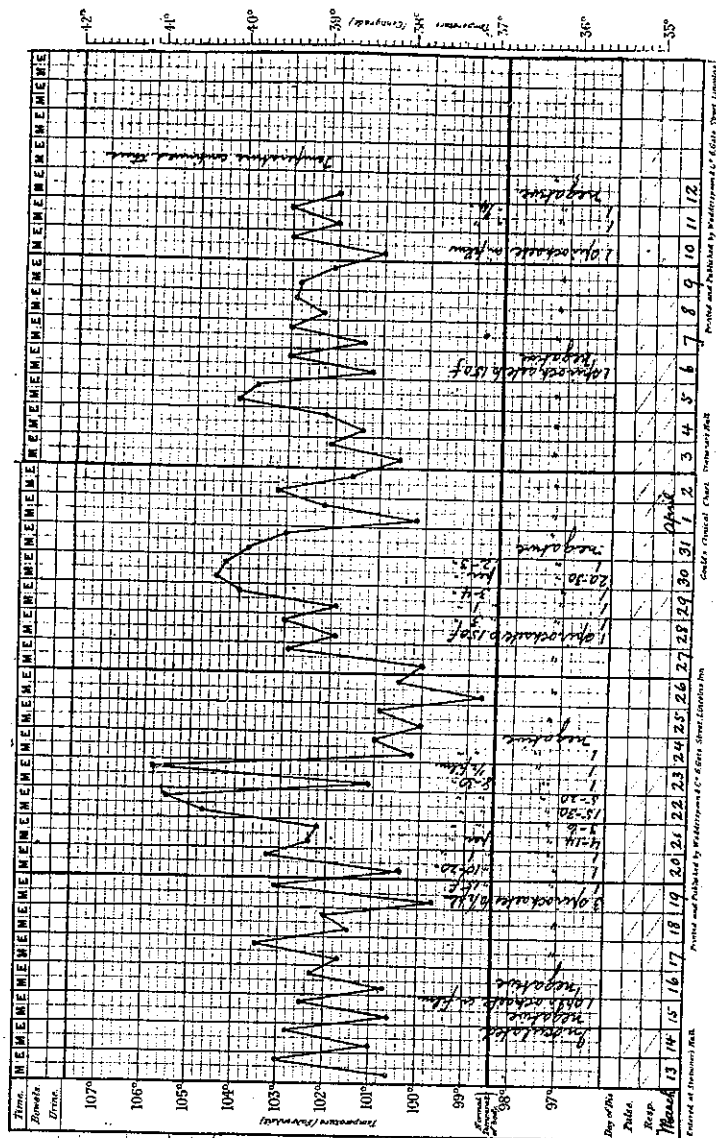 Time.
Bowels.
Urine.
M E M E M E M E M E M E M E M E M E M E M E M E M E M E M E M E M E M E M E M E M E M E M E M E M E M E M E M E M E M E M E M E M E M E M E
Temperature (Fahrenheit)
107°
106°
105°
104°
103°
102°
101°
100°
99°
98°
97°
Temperature (Centigrade)
42°
41°
40°
39°
38°
37°
36°
35°
Temperature continued thus
Inoculated
negative
1 spirochaete in film
negative
3 spirochaetes to
1
1 " 10-20.
1 " 1 "
4-14 per "
3-6 "
15-30 "
5-20 "
1 " 5-20.
1 " ½ film
1 "
negative
1 spirochaete to 150 f.
1 " 3 "
1 " 1 "
1 " 3-4.
20-30 per "
1 " 2-3.
negative
1 spirochaete to 150 f
negative
1 spirochaete in film
1 " "
1 "
negative.
Day of Dis
Pulse.
Resp.
March 13 14 15 16 17 18 19 20 21 22 23 24 25 26 27 28 29 30 31 April 1 2 3 4 5 6 7 8 9 10 11 12
Entered at Stationers Hall.
Printed and Published by Wodderspoon & Co 6, Gate Street, Lincolns Inn
Clinical Chart. Stationers Hall.
Printed and Published by Wodderspoon & Co 6, Gate Street, Lincolns